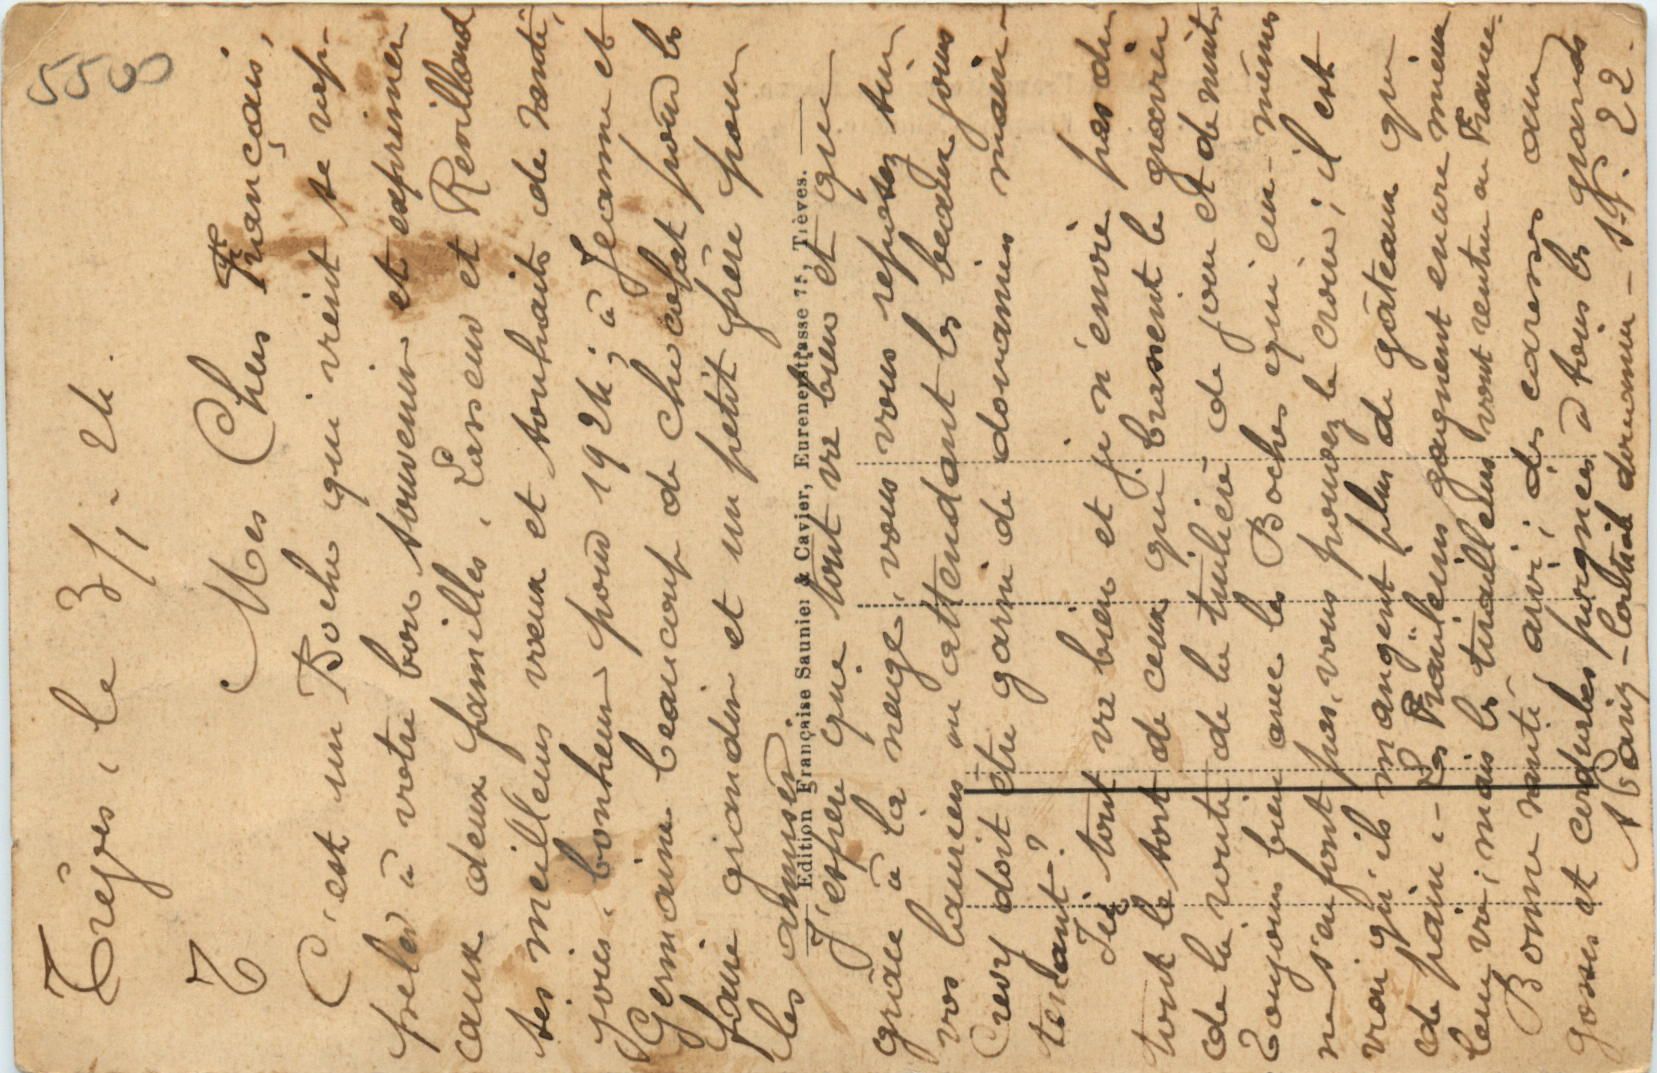 5500
Trèves, le 3/1-24.
Mes Chers Français,
C'est un Boche qui vient se rap-
peler à votre bon souvenir et exprimer
aux deux familles, Lasseur et Revillond
ses meilleurs vœux et souhaits de santé,
joies, bonheur pour 1924; à Jeanne et
Germaine beaucoup de chocolat pour les
faire grandir et un petit frère pour
les amuser.
Edition Française Saunier & Cavier, Eurenerstrasse 75, Trèves.
J'espère que tout va bien et que
grâce à la neige, vous vous reposez sur
vos lauriers en attendant les beaux jours
Crevy doit être garni de douaniers main-
tenant?
Ici tout va bien et je n'envie pas du
tout le sort de ceux qui brassent le gravier
de la route de la tuilerie de jour et de nuit
Toujours bien avec les Boches qui eux-mêmes
ne s'en font pas, vous pouvez le croire; il est
vrai qu'ils mangent plus de gâteaux que
de pain :- Les Fraüleins gagnent encore mieux
leur vie; mais les tirailleurs vont rentrer en France.
Bonne santé, avi; des caresses aux
gosses et cordiales poignées à tous les grands
Paris - Contrôle douanier - S.P. 22.